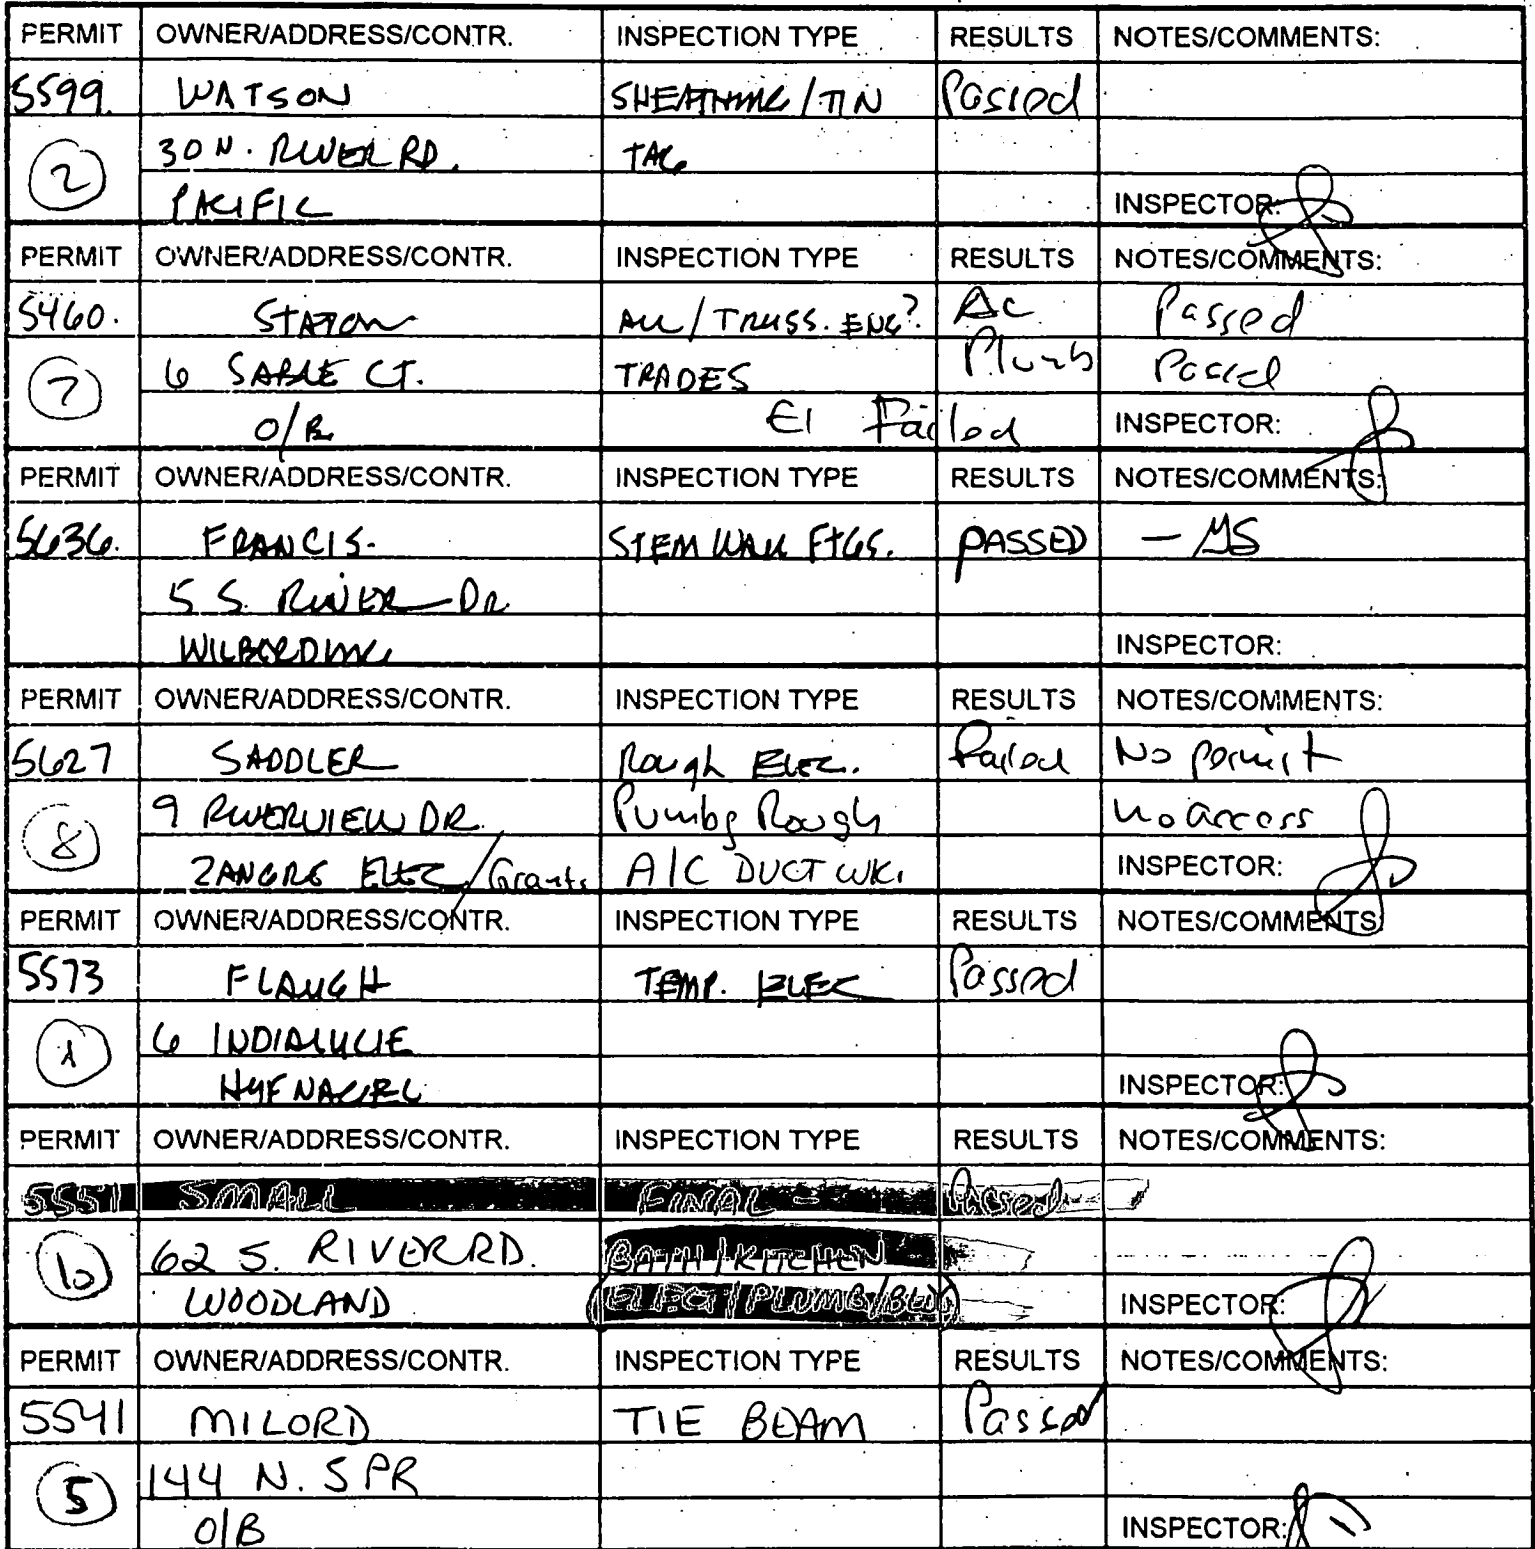 PERMIT OWNER/ADDRESS/CONTR. INSPECTION TYPE RESULTS NOTES/COMMENTS:
5599. WATSON SHEATHING/TIN Passed
2 30 N. RIVER RD. TAG
PACIFIC INSPECTOR:
PERMIT OWNER/ADDRESS/CONTR. INSPECTION TYPE RESULTS NOTES/COMMENTS:
5460. STATON ALL/TRUSS. ENG? AC Passed
7 6 SABLE CT. TRADES Plumb Passed
O/B El Failed INSPECTOR:
PERMIT OWNER/ADDRESS/CONTR. INSPECTION TYPE RESULTS NOTES/COMMENTS:
5636. FRANCIS. STEM WALL FTGS. PASSED - MS
5 S. RIVER DR.
WILBERDING INSPECTOR:
PERMIT OWNER/ADDRESS/CONTR. INSPECTION TYPE RESULTS NOTES/COMMENTS:
5627 SADDLER Rough ELEC. Failed No permit
8 9 RIVERVIEW DR. Pumbg Rough no access
ZANGRE ELEC/Grants A/C DUCT WK. INSPECTOR:
PERMIT OWNER/ADDRESS/CONTR. INSPECTION TYPE RESULTS NOTES/COMMENTS:
5573 FLAUGH TEMP. ELEC Passed
1 6 INDIALUCIE
HUFNAGEL INSPECTOR:
PERMIT OWNER/ADDRESS/CONTR. INSPECTION TYPE RESULTS NOTES/COMMENTS:
5551 SMALL FINAL - Passed
62 S. RIVER RD. BATH/KITCHEN
WOODLAND ELECT/PLUMB/BLD INSPECTOR:
PERMIT OWNER/ADDRESS/CONTR. INSPECTION TYPE RESULTS NOTES/COMMENTS:
5541 MILORD TIE BEAM Passed
5 144 N. SPR
O/B INSPECTOR: